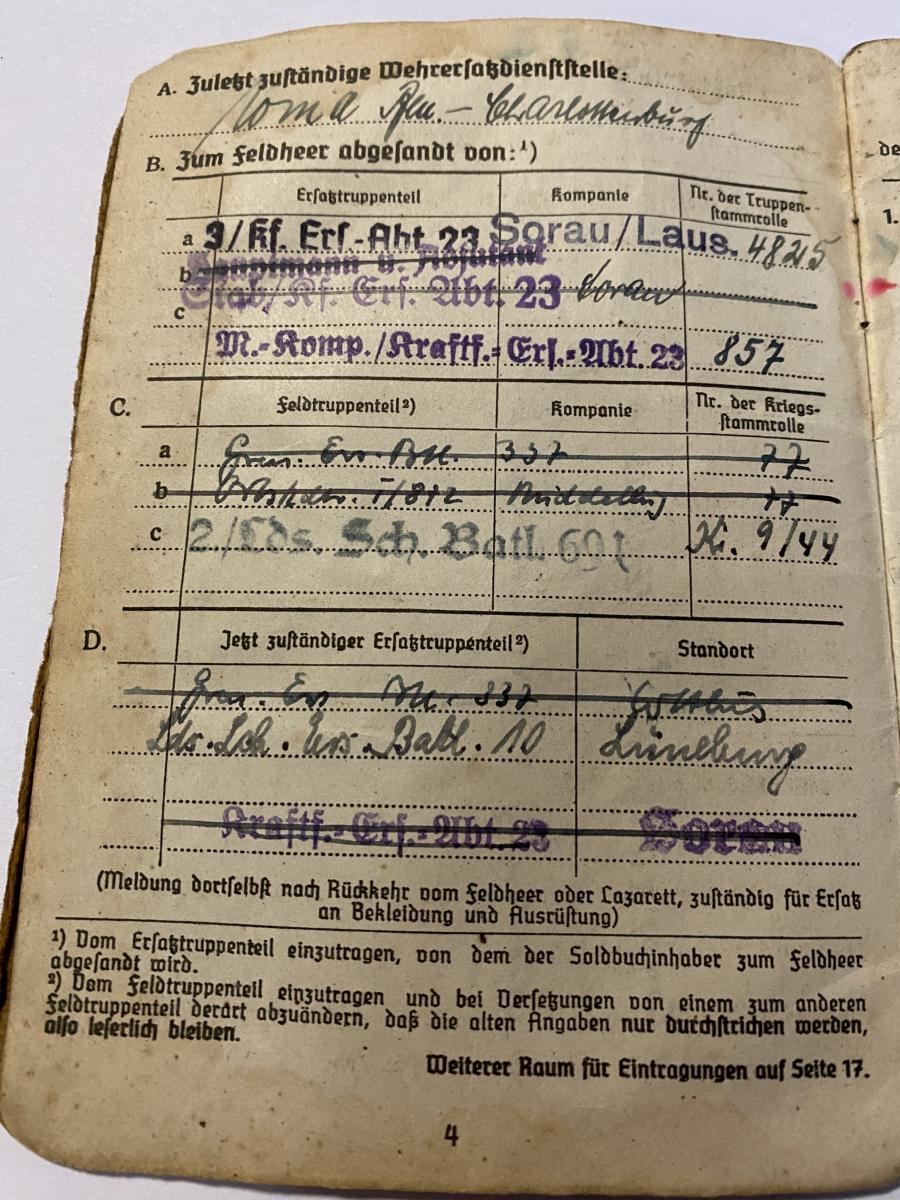 A. Zuletzt zuständige Wehrersatzdienststelle:
Bln. - Charlottenburg
B. Zum Feldheer abgesandt von:¹)
Ersatztruppenteil Kompanie Nr. der Truppen-
stammrolle
a 3/Kf. Ers.-Abt. 23 Sorau/Laus. 4825
b Hauptmann u. Adjutant
c Stab/Kf. Ers. Abt. 23 Sorau
M.-Komp./Kraftf.-Ers.-Abt. 23 857
C. Feldtruppenteil²) Kompanie Nr. der Kriegs-
stammrolle
a Gren. Ers. Btl. 337 77
b I/812 77
c 2./Lds. Sch. Batl. 691 Kr. 9/44
D. Jetzt zuständiger Ersatztruppenteil²) Standort
Gren. Ers 337 Cottbus
Lds. Sch. Ers. Batl. 10 Lüneburg
Kraftf.-Ers.-Abt. 23 Sorau
(Meldung dortselbst nach Rückkehr vom Feldheer oder Lazarett, zuständig für Ersatz
an Bekleidung und Ausrüstung)
¹) Vom Ersatztruppenteil einzutragen, von dem der Soldbuchinhaber zum Feldheer
abgesandt wird.
²) Vom Feldtruppenteil einzutragen und bei Versetzungen von einem zum anderen
Feldtruppenteil derart abzuändern, daß die alten Angaben nur durchstrichen werden,
also leserlich bleiben.
Weiterer Raum für Eintragungen auf Seite 17.
4
de
1.